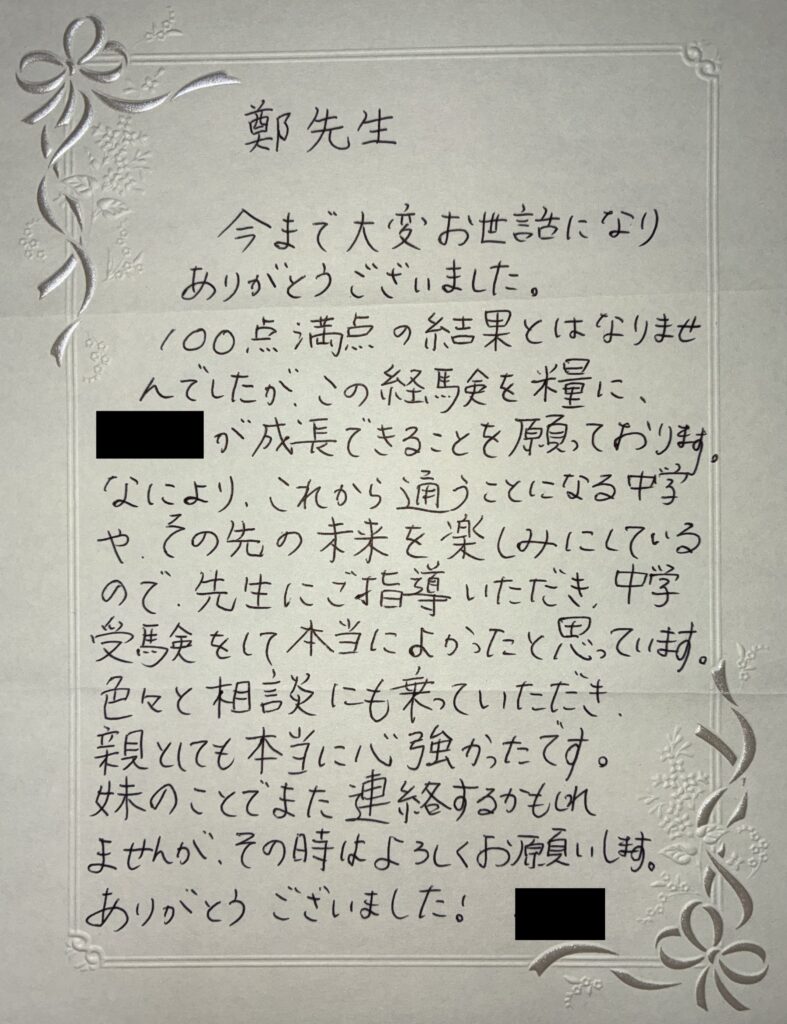 鄭先生
今まで大変お世話になり
ありがとうございました。
100点満点の結果とはなりませ
んでしたが、この経験を糧に、
が成長できることを願っております。
なにより、これから通うことになる中学
や、その先の未来を楽しみにしている
ので、先生にご指導いただき、中学
受験をして本当によかったと思っています。
色々と相談にも乗っていただき、
親としても本当に心強かったです。
妹のことでまた連絡するかもしれ
ませんが、その時はよろしくお願いします。
ありがとうございました!